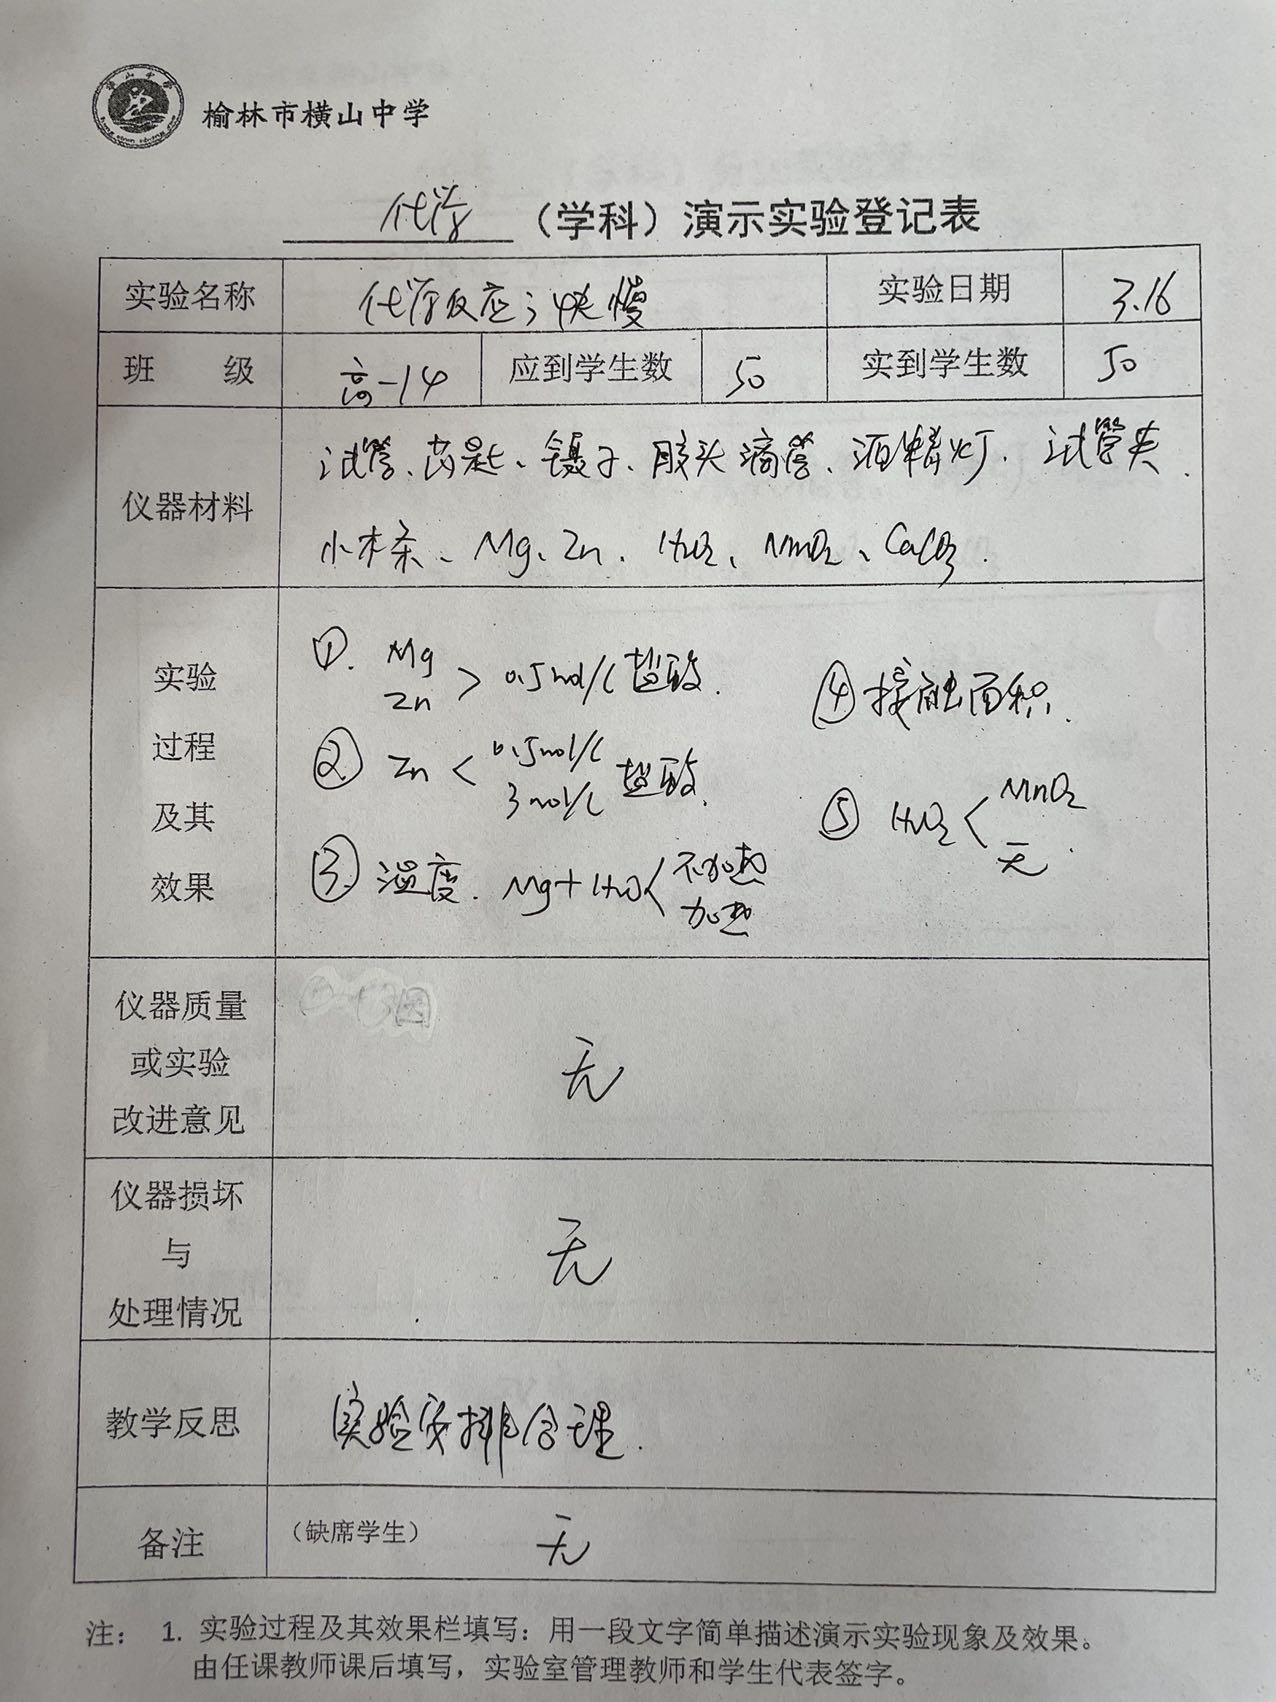 榆林市横山中学
化学 （学科）演示实验登记表
实验名称 化学反应之快慢 实验日期 3.16
班 级 高一14 应到学生数 50 实到学生数 50
试管、药匙、镊子、胶头滴管、酒精灯、试管夹、
仪器材料
小木条、Mg、Zn、H2O2、MnO2、CaCO3.
实验
过程
及其
效果
①. Mg
Zn > 0.5mol/L 盐酸.
② Zn < 0.5mol/L
3mol/L 盐酸.
③ 温度. Mg+H2O < 不加热
加热
④ 接触面积.
⑤ H2O2 < MnO2
无.
仪器质量
或实验
改进意见
无
仪器损坏
与
处理情况
无
教学反思 实验安排合理.
备注 （缺席学生） 无
注： 1. 实验过程及其效果栏填写：用一段文字简单描述演示实验现象及效果。
由任课教师课后填写，实验室管理教师和学生代表签字。